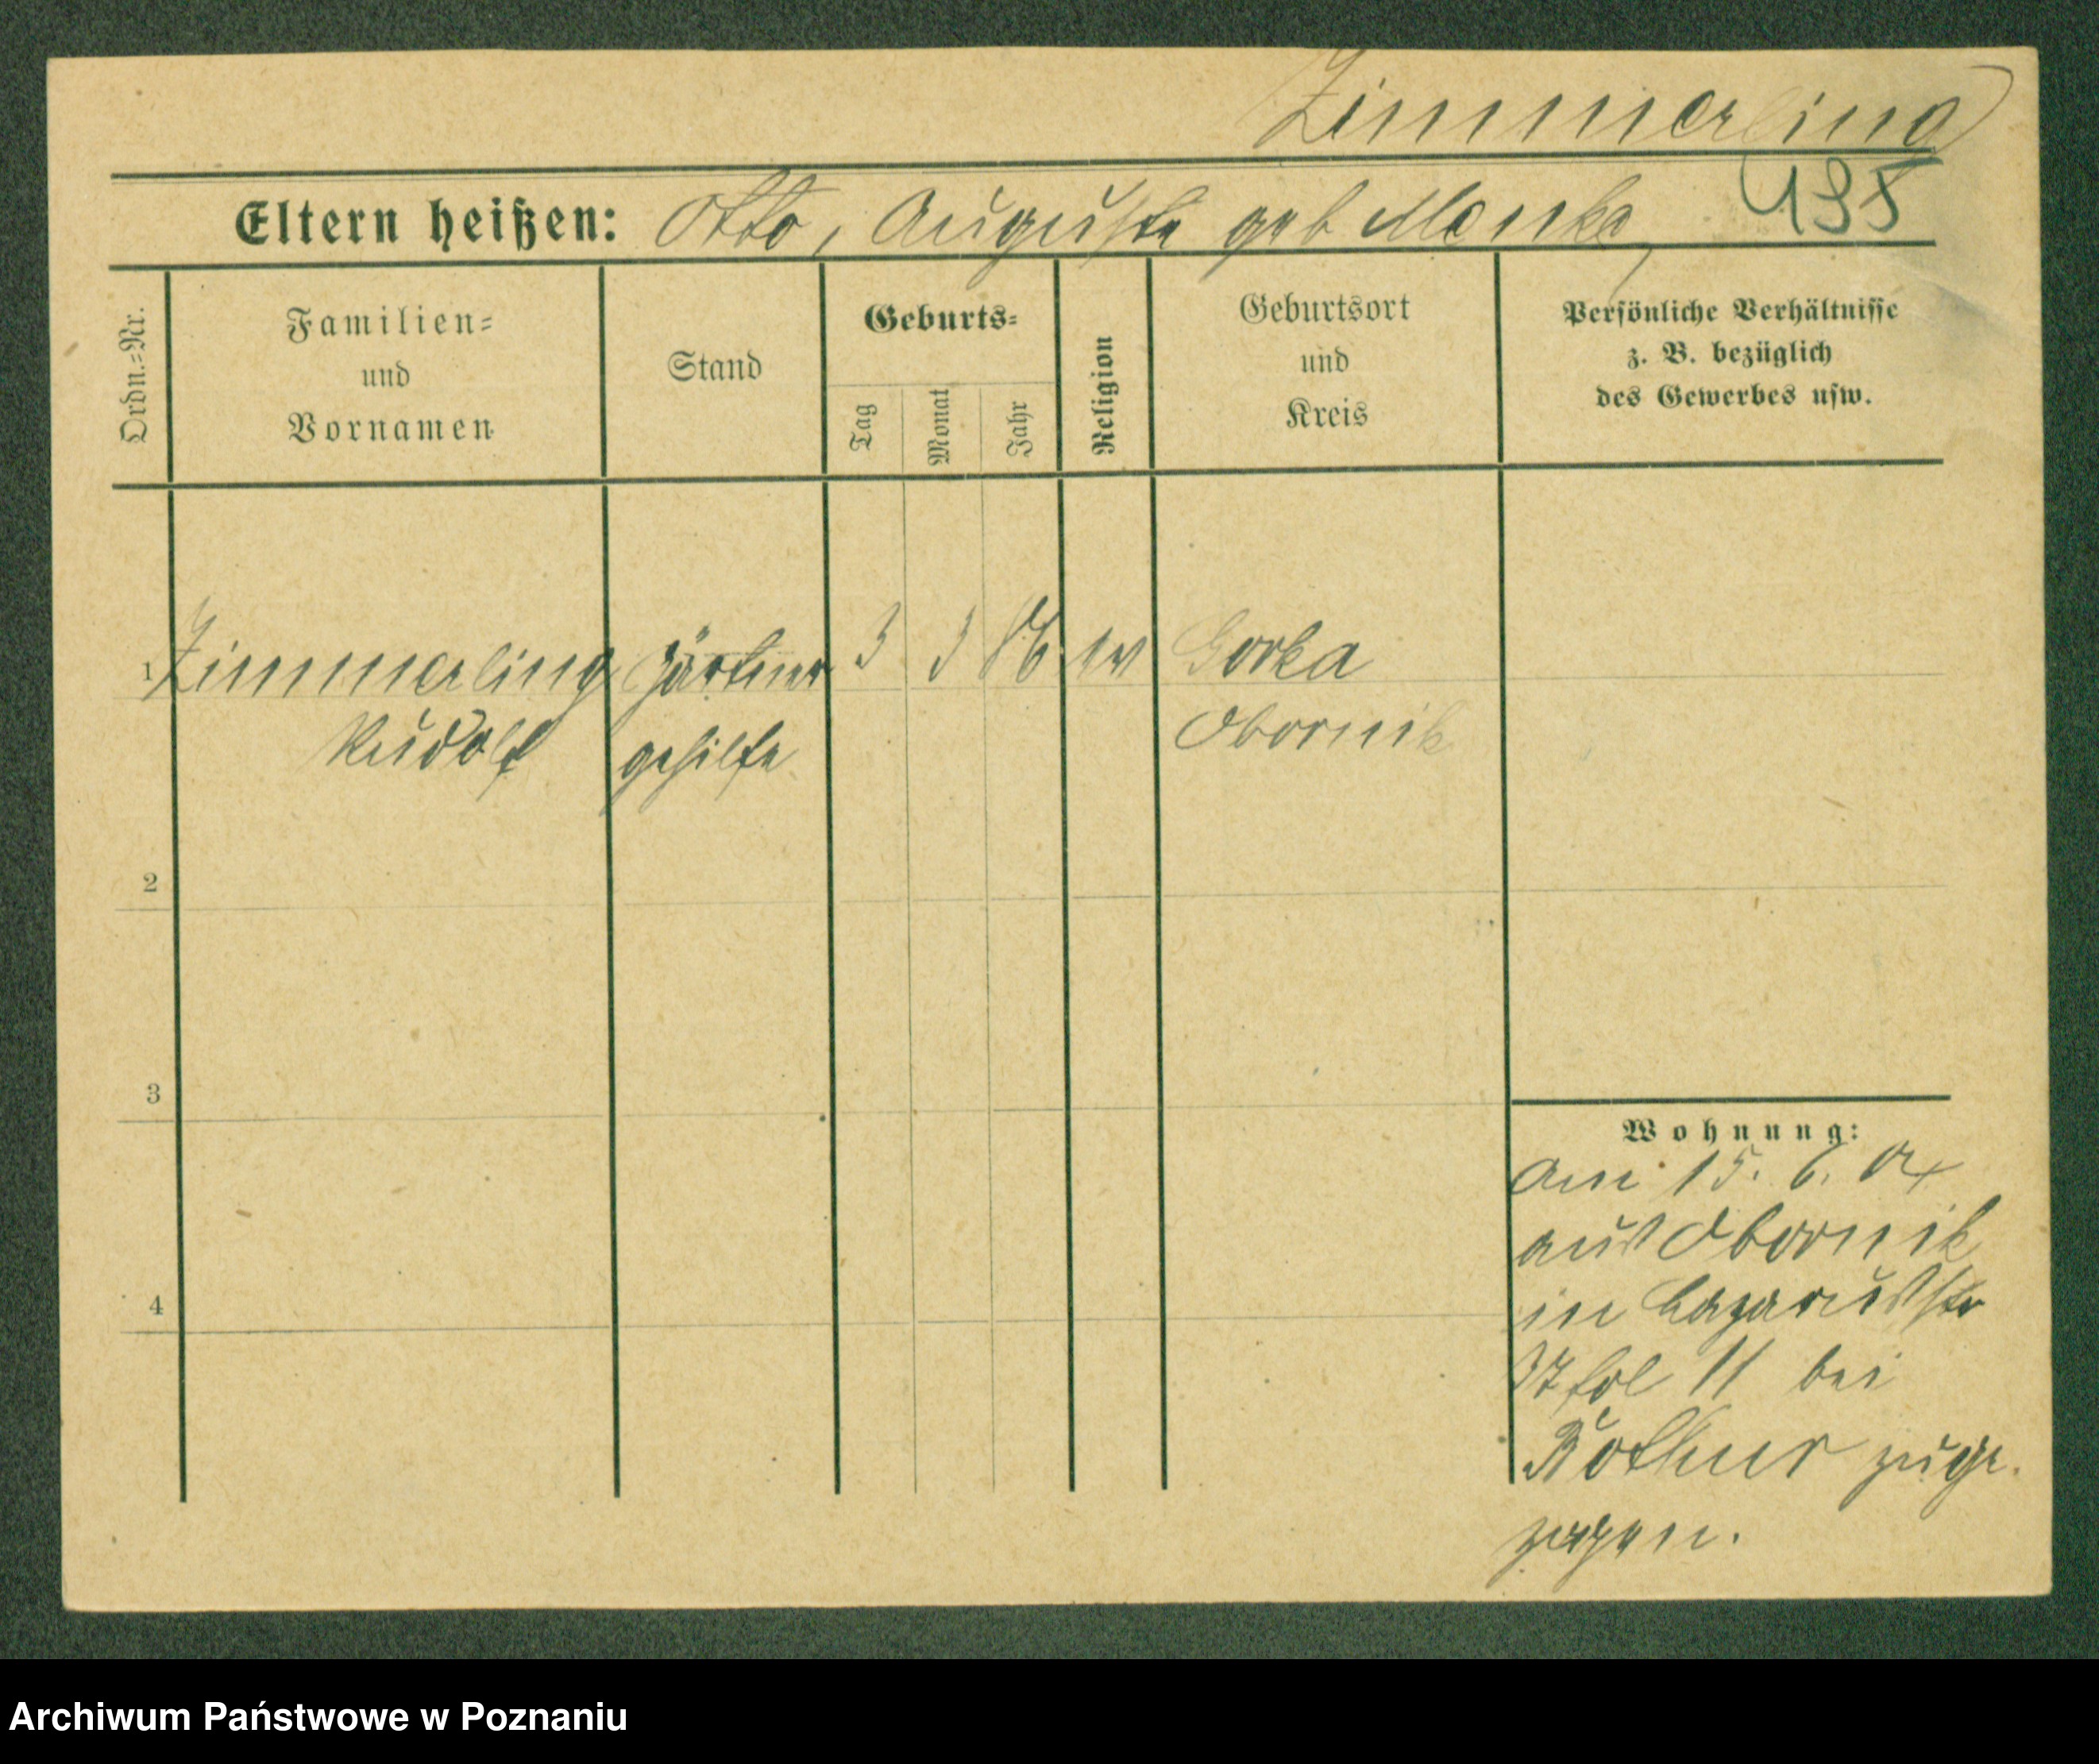 Zimmerling
Eltern heißen: Otto, Auguste geb Manke
495
Ordn.=Nr.
Familien=
und
Vornamen
Stand
Geburts=
Tag
Monat
Jahr
Religion
Geburtsort
und
Kreis
Persönliche Verhältnisse
z. B. bezüglich
des Gewerbes usw.
1 Zimmerling Gärtner 3 3 86 ev Gorka
Rudolf gehilfe Obornik
2
3
4
Wohnung:
Am 15. 6. 04
aus Obornik
in Lazarusstr
37 bei
zuge
zogen.
Archiwum Państwowe w Poznaniu